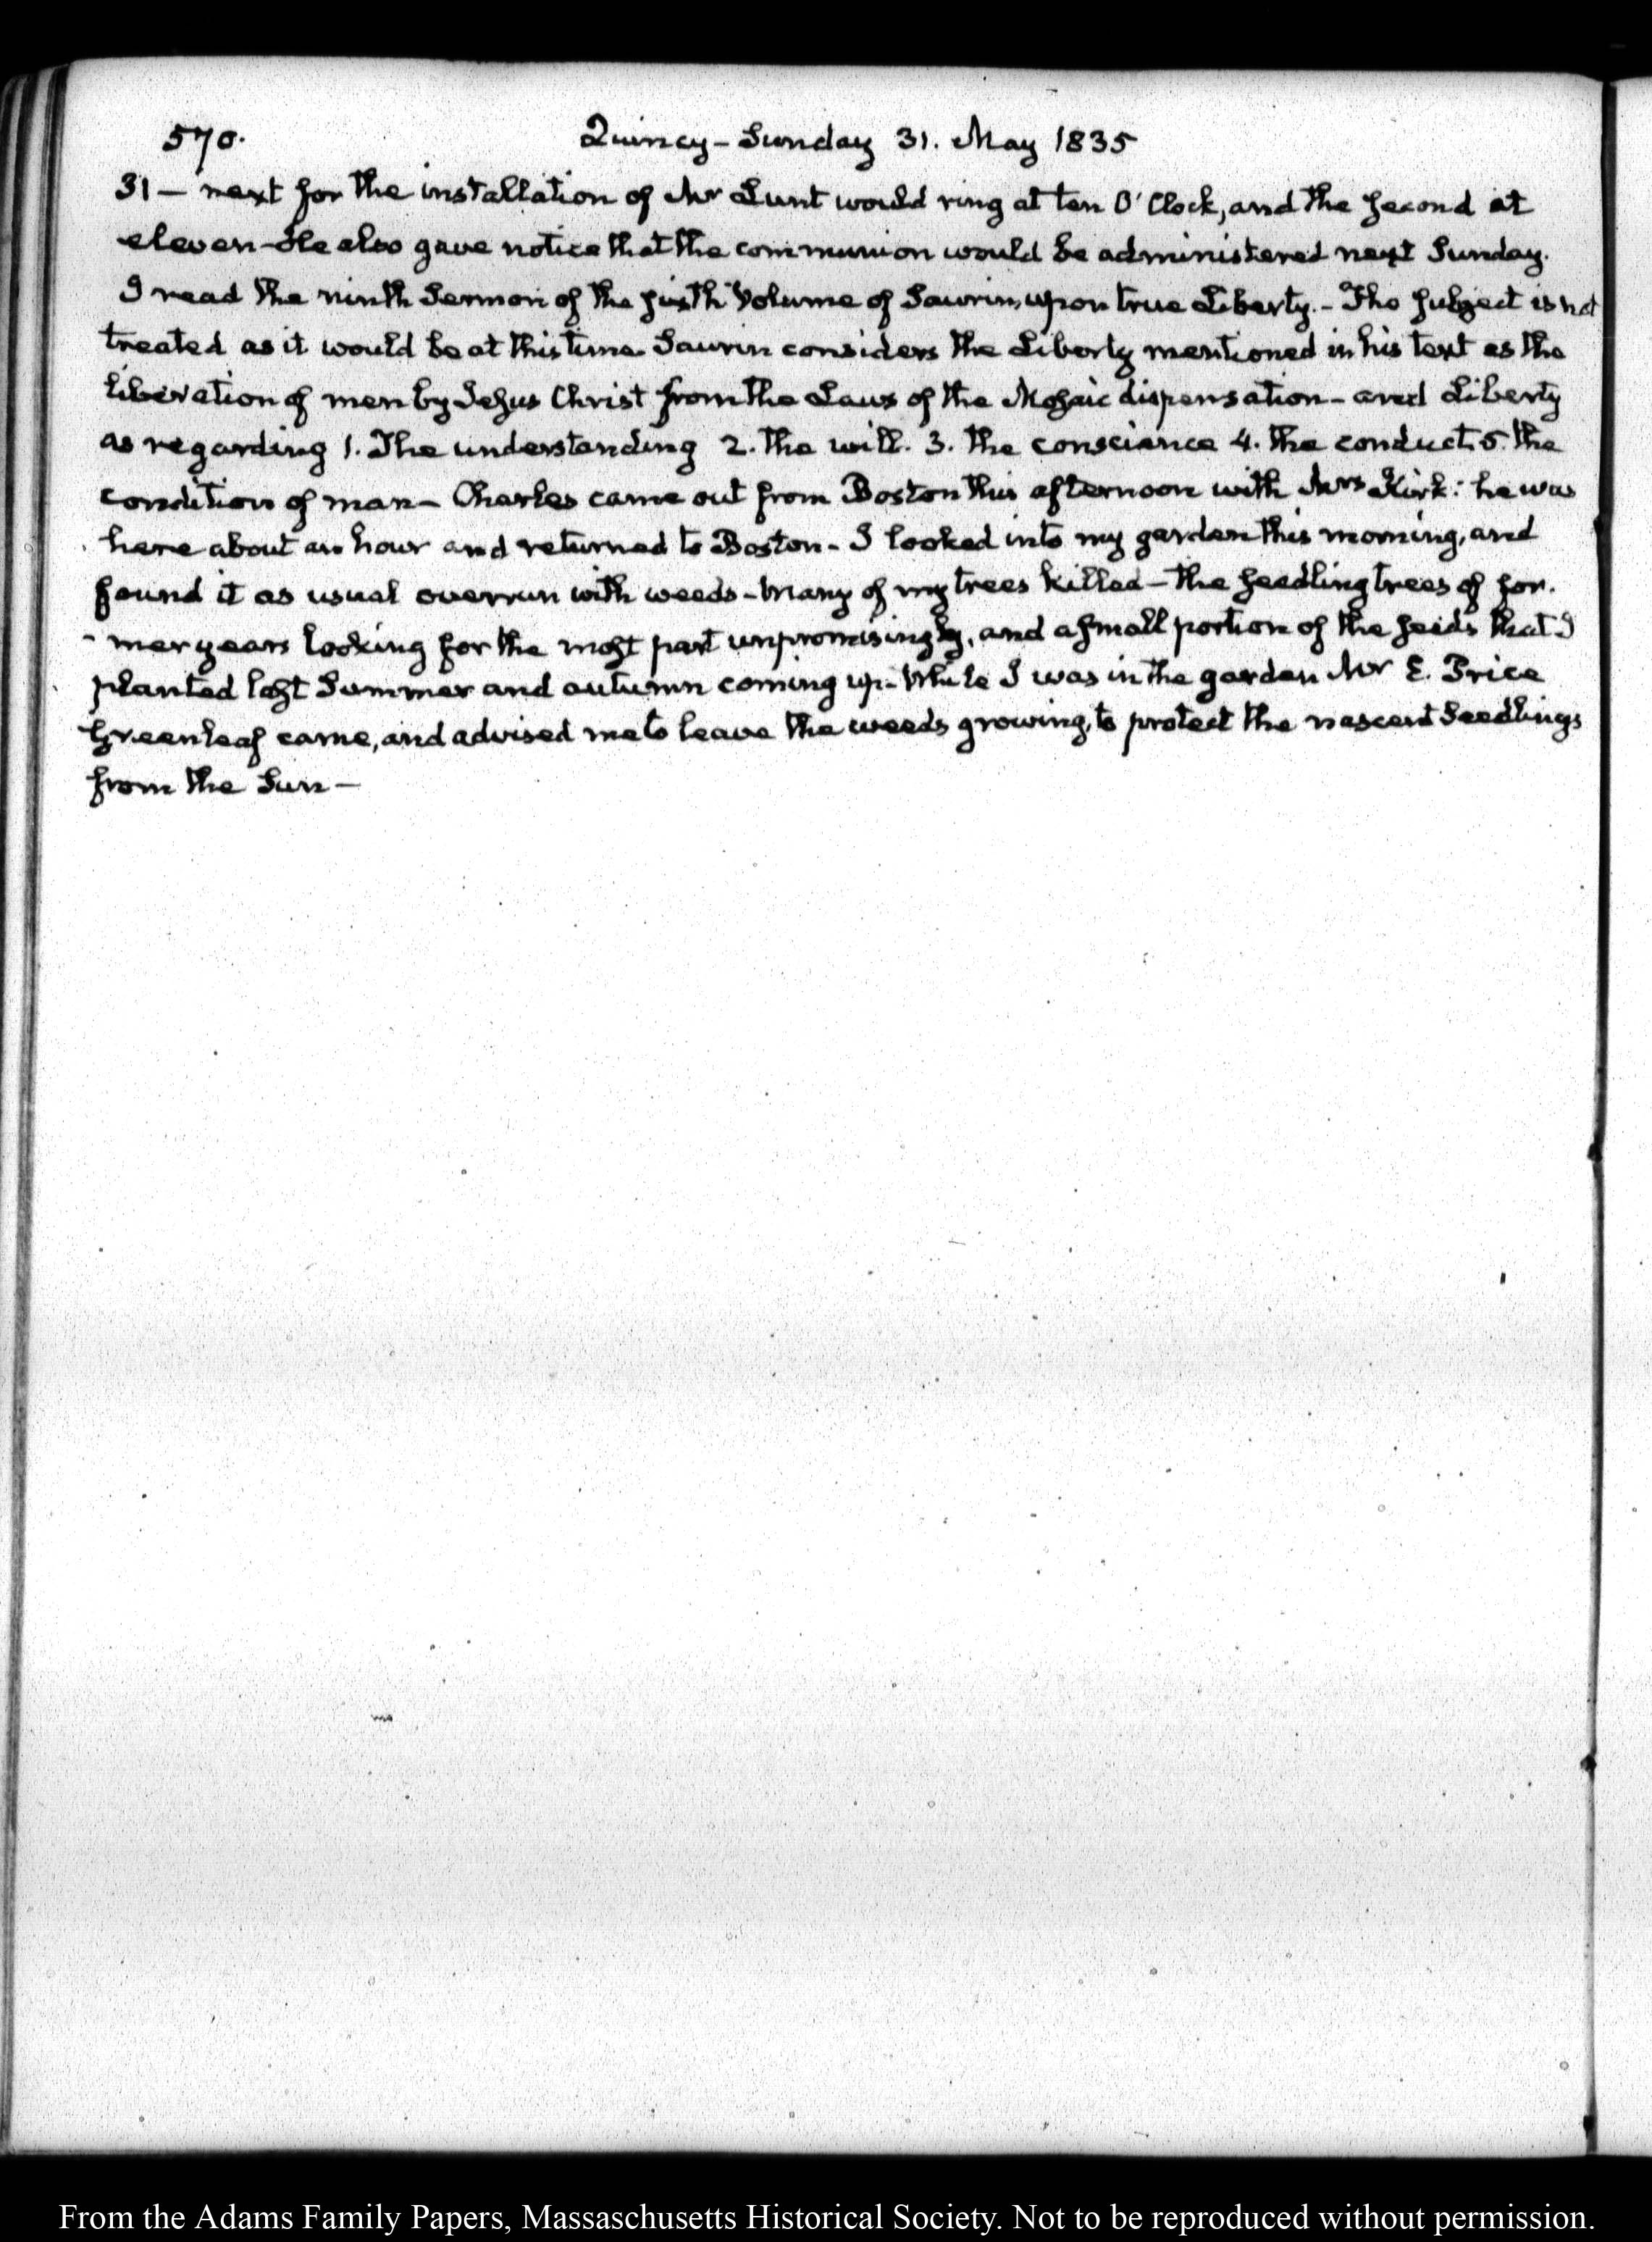 570. Quincy – Sunday 31. May 1835
31 — next for the installation of Mr Lunt would ring at ten O'Clock, and the second at
eleven – He also gave notice that the communion would be administered next Sunday.
I read the ninth Sermon of the sixth Volume of Saurin, upon true Liberty. – The subject is not
treated as it would be at this time. Saurin considers the Liberty mentioned in his text as the
liberation of men by Jesus Christ from the Laws of the Mosaic dispensation – and Liberty
as regarding 1. The understanding 2. the will. 3. the conscience 4. the conduct. 5. the
condition of man – Charles came out from Boston this afternoon with Mrs Kirk: he was
here about an hour and returned to Boston – I looked into my garden this morning, and
found it as usual overrun with weeds – Many of my trees killed – the seedling trees of for-
-mer years looking for the most part unpromisingly, and a small portion of the seeds that I
planted last Summer and autumn coming up – While I was in the garden Mr E. Price
Greenleaf came, and advised me to leave the weeds growing, to protect the nascent Seedlings
from the Sun —
From the Adams Family Papers, Massaschusetts Historical Society. Not to be reproduced without permission.